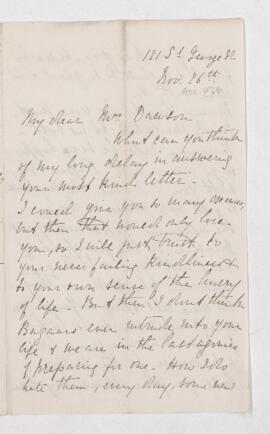 121 St. George St
Nov. 26th
My dear Mrs Dawson
What can you think
of my long delay in answering
your most kind letter.
I could give you so many excuses,
but then that would only bore
you, so I will just trust to
your never failing kindliness &
to your own sense of the hurry
of life. But then I dont think
Bazaars ever intrude into your
life & we are in the last agonies
of preparing for one. How I do
hate them, every day, some new